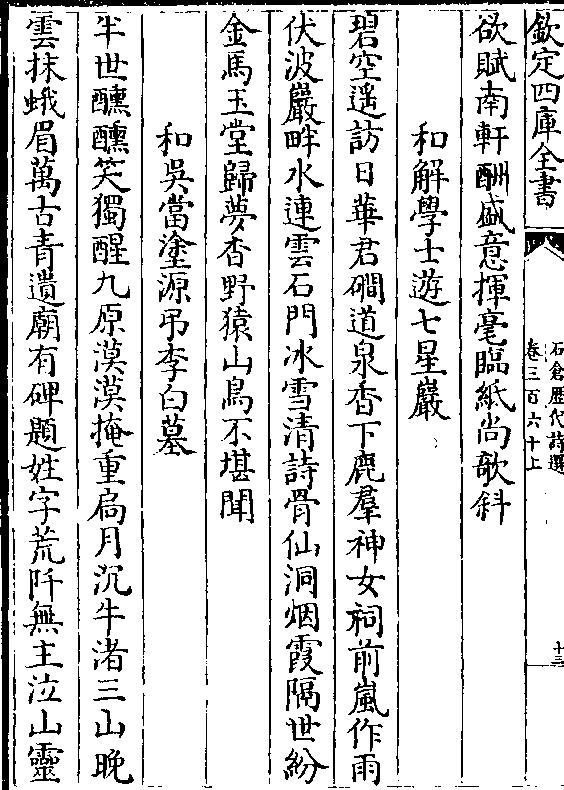 欽定四庫全書
石倉歴代詩選
卷三百六十上
十三
欲賦南軒酬盛意揮毫臨紙尚欹斜
和解學士遊七星巖
碧空遥訪日華君磵道泉香下鹿羣神女祠前嵐作雨
伏波巖畔水連雲石門冰雪清詩骨仙洞烟霞隔世紛
金馬玉堂歸夢杳野猿山鳥不堪聞
和吳當塗源弔李白墓
半世醺醺笑獨醒九原漠漠掩重扃月沉牛渚三山晚
雲抹蛾眉萬古青遺廟有碑題姓字荒阡無主泣山靈